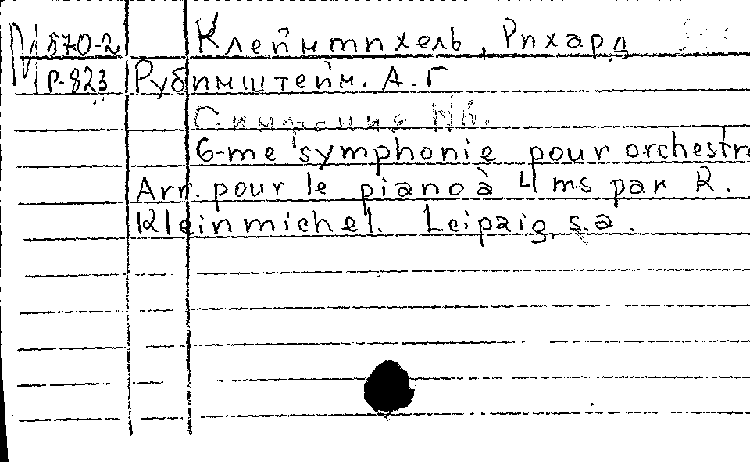 М 570-2 Клейнмихель, Рихард
Р-823 Рубинштейн. А. Г
Симфония №6.
6-me symphonie pour orchestre
Arr. pour le piano à 4 ms par R.
Kleinmichel. Leipzig, s.a.